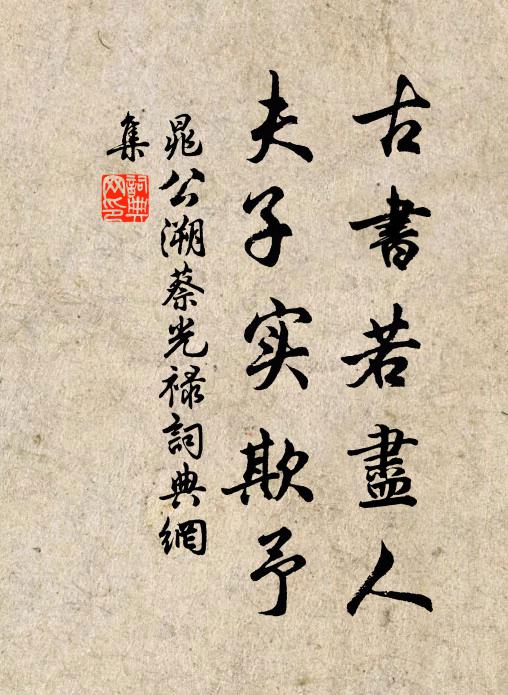 古書若盡人
夫子实欺予
晁公溯蔡光禄詞典網
集
詞典網印